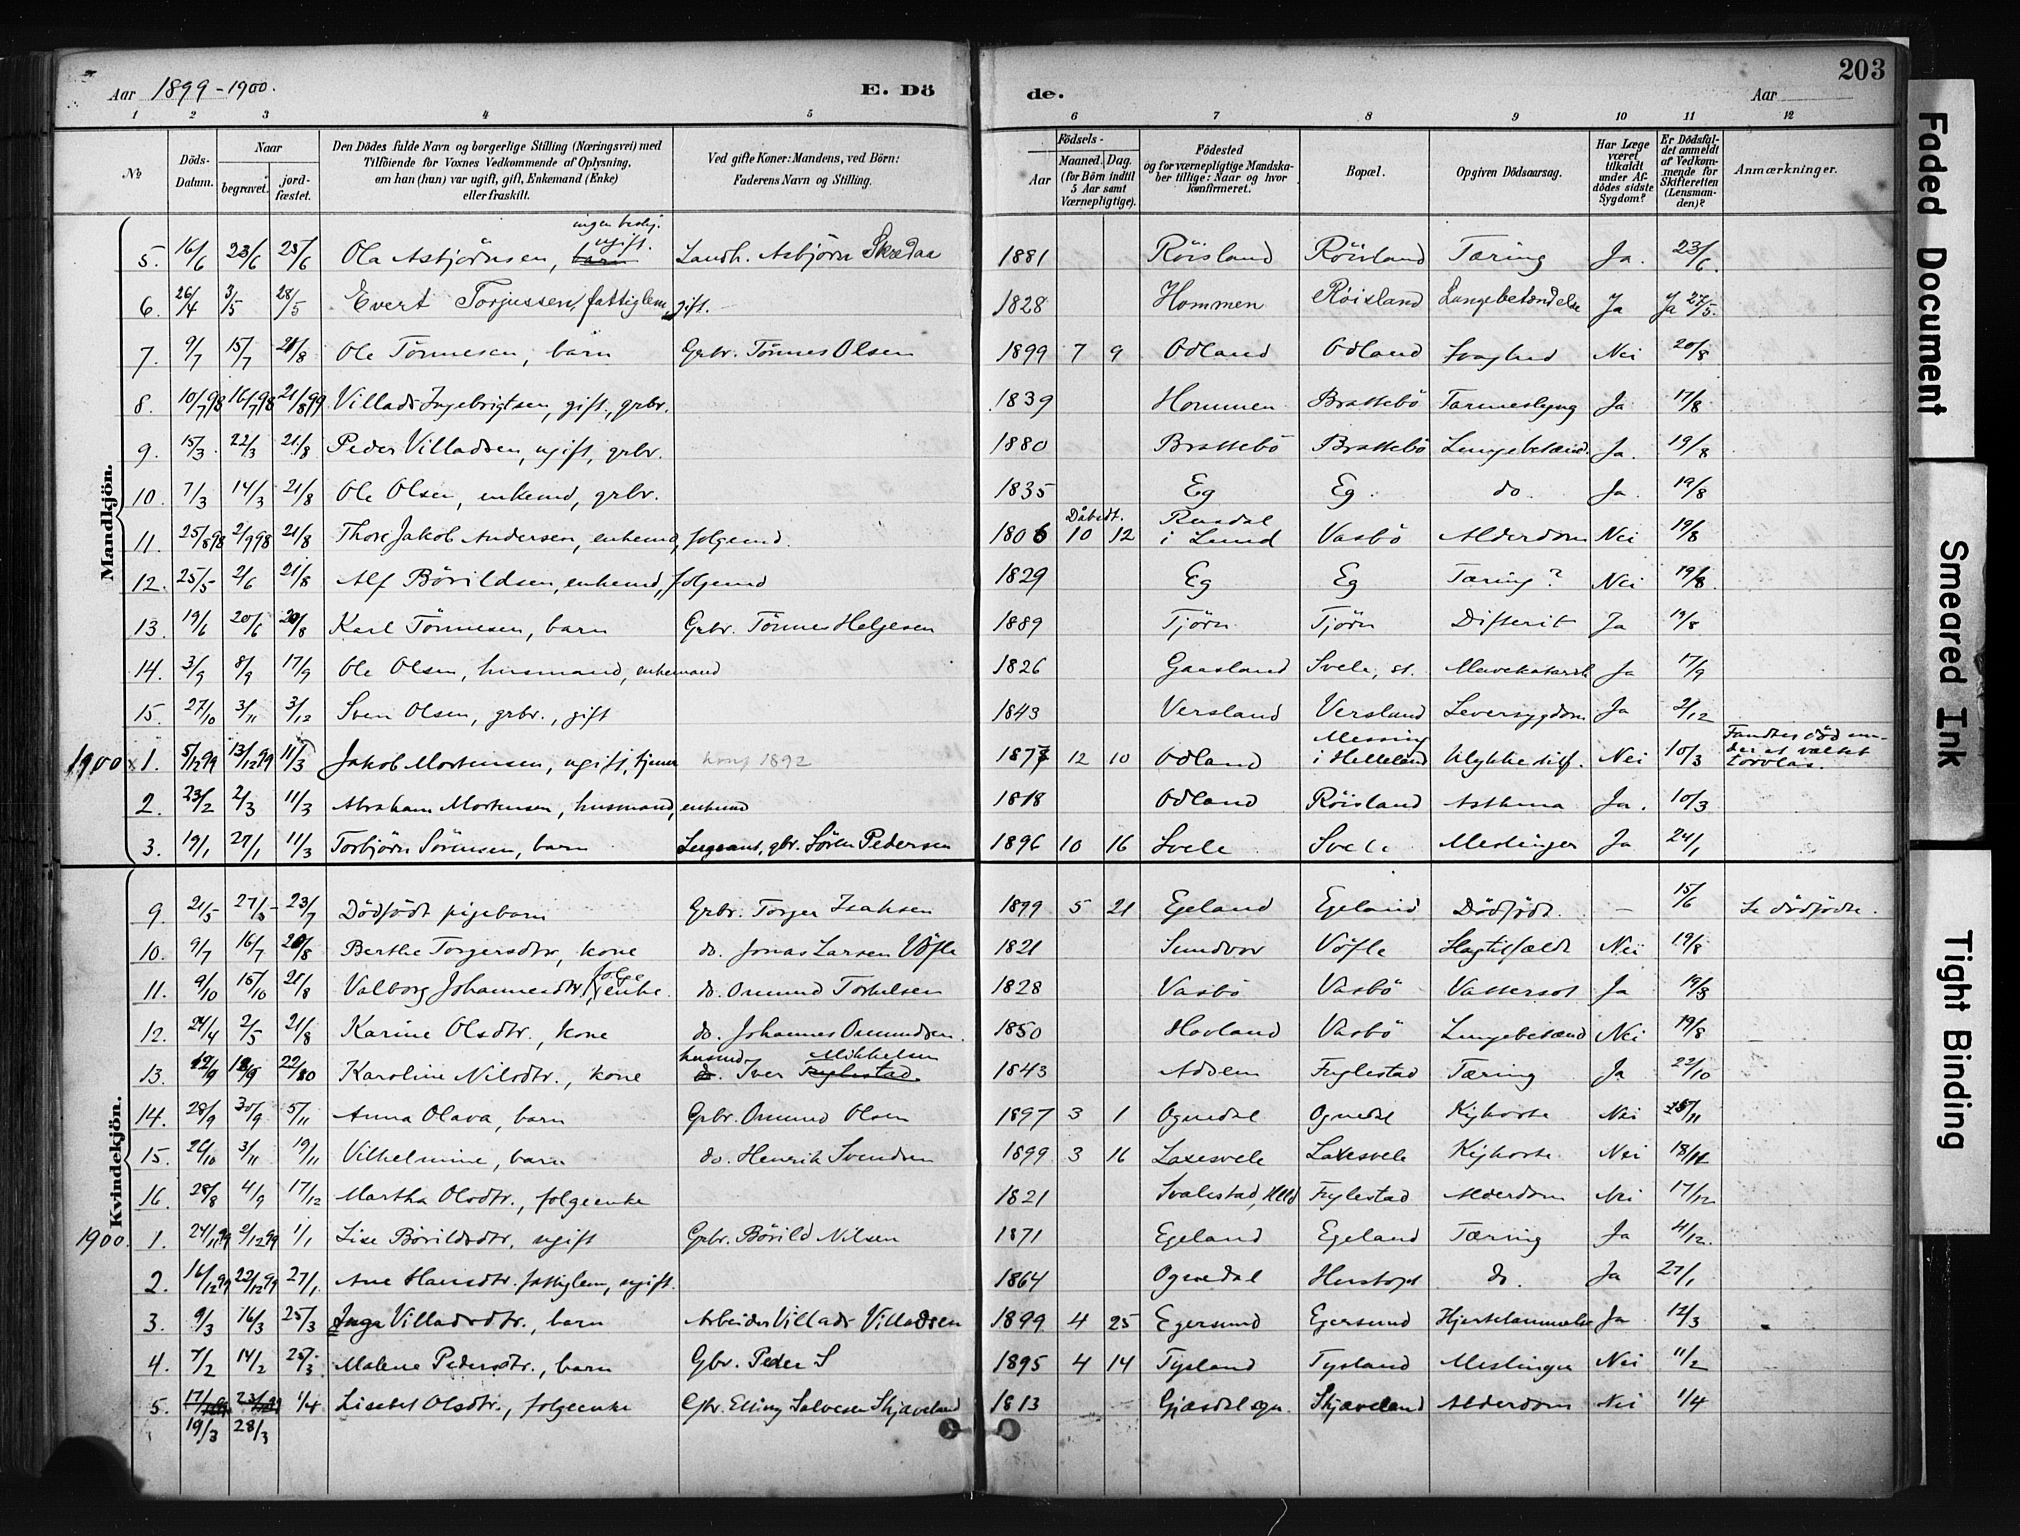 203
Aar 1899-1900.
E. Dö
de.
Aar
1 2 3 4 5 6 7 8 9 10 11 12
No
Döds-Datum.
Naar
begravet.
jord-fæstet.
Den Dödes fulde Navn og borgerlige Stilling (Næringsvei) med
Tilföiende for Voxnes Vedkommende af Oplysning,
om han (hun) var ugift, gift, Enkemand (Enke)
eller fraskilt.
Ved gifte Koner: Mandens, ved Börn:
Faderens Navn og Stilling.
Födsels-
Aar
Maaned. Dag.
(for Börn indtil
5 Aar samt
Værnepligtige).
Födested
og for værnepligtige Mandska-
ber tillige: Naar og hvor
konfirmeret.
Bopæl.
Opgiven Dödsaarsag.
Har Læge
været
tilkaldt
under Af-
dödes sidste
Sygdom?
Er Dödsfal-
det anmeldt
af Vedkom-
mende for
Skifteretten
(Lensman-
den)?
Anmærkninger.
Mandkjön.
5. 16/6 23/6 25/6 Ola Asbjörnsen, barn ugift. Landh. Asbjörn Skrædaa 1881 Röisland Röisland Tæring Ja. 23/6.
6. 26/4 3/5 28/5 Evert Torjussen, fattiglem, gift. 1828 Hommen Röisland Lungebetændelse Ja Ja 27/5.
7. 9/7 15/7 21/8 Ole Tönnesen, barn Grbr. Tönnes Olsen 1899 7 9 Odland Odland Svaghed Nei 20/8
8. 10/7 98 16/7 98 21/8 99 Villads Ingebrigtsen, gift, grbr. 1839 Hommen Brattebö Tarmeslyng Ja 17/8
9. 15/3 22/3 21/8 Peder Villadsen, ugift, grbr. 1880 Brattebö Brattebö Lungebetænd. Ja. 19/8
10. 7/3 14/3 21/8 Ole Olsen, enkemd, grbr. 1835 Eg Eg. do. Ja. 19/8
11. 25/8 98 2/9 98 21/8 Thore Jakob Andersen, enkemd, folgemd. 1806 Dåbsdt. 10 12 Rusdal i Lund Vasbö Alderdom Nei 19/8
12. 25/5 2/6 21/8 Alf Börildsen, enkemd, folgemd 1829 Eg Eg Tæring? Nei 19/8.
13. 19/6 20/6 20/8 Karl Tönnesen, barn Grbr. Tönnes Helgesen 1889 Tjörn Tjörn Difterit Ja 19/8
14. 3/9 8/9 17/9 Ole Olsen, husmand, enkemand 1826 Gaasland Svele, st. Mavekatarrh Ja 17/9
15. 27/10 3/11 3/12 Sven Olsen, grbr., gift 1843 Versland Versland Leversygdom Ja 2/12
1900 x 1. 5/12 99 13/12 99 11/3 Jakob Mortensen, ugift, tjener konf 1892 1877 12 10 Odland Messing i Helleland Ulykkestilf. Nei 10/3 Fandtes död un-
der et væltet
torvlas.
2. 23/2 2/3 11/3 Abraham Mortensen, husmand, enkemd 1818 Odland Röisland Asthma Ja. 10/3
3. 19/1 27/1 11/3 Torbjörn Sörensen, barn Sergeant, gbr. Sören Pedersen 1896 10 16 Svele Svele Meslinger Ja 24/1
Kvindekjön.
9. 21/5 27/5 23/7 Dödfödt pigebarn Grbr. Torger Isaksen 1899 5 21 Egeland Egeland Dödfödt. — 15/6 Se dödfödte.
10. 9/7 16/7 20/8 Berthe Torgersdtr, kone do. Jonas Larsen Vöfle 1821 Sundvor Vöfle Slagtilfælde Nei 19/8
11. 9/10 15/10 21/8 Valborg Johannesdtr, folgeenke. do. Omund Torkelsen 1828 Vasbö Vasbö Vattersot Ja 19/8
12. 24/4 2/5 21/8 Karine Olsdtr., kone do. Johannes Omundsen. 1850 Hovland Vasbö Lungebetænd Nei 19/8
13. 12/9 18/9 22/10 Karoline Nilsdtr., kone husmd do. Iver Fuglestad Mikkelsen 1843 Adsem Fuglestad Tæring Ja 22/10
14. 28/9 30/9 5/11 Anna Olava, barn Grbr. Omund Olsen 1897 3 1 Ognedal Ognedal Kighoste Nei 5/11
15. 26/10 3/11 19/11 Vilhelmine, barn do. Henrik Svendsen 1899 3 16 Laxesvele Laxesvele Kighoste Nei 18/11
16. 28/8 4/9 17/12 Martha Olsdtr., folgeenke 1821 Svalestad, Hlld Fuglestad Alderdom Nei 17/12
1900. 1. 24/11 99 2/12 99 1/1 Lise Börildsdtr, ugift Grbr. Börild Nilsen 1871 Egeland Egeland Tæring Ja 4/12.
2. 16/12 99 22/12 99 27/1. Ane Hansdtr. fattiglem, ugift. 1864 Ognedal do. Ja 27/1
3. 9/3 16/3 25/3 Inga Villadsdtr., barn Arbeider Villads Villadsen 1899 4 25 Egersund Egersund Hjertelammelse Ja 12/3
4. 7/2 14/2 25/3. Malene Pedersdtr., barn Gbr. Peder S 1895 4 14 Tysland Tysland Meslinger Nei 11/2
5. 19/3 28/3 1/4 Lisebet Olsdtr., folgeenke Gbr. Elling Salvesen Skjæveland 1813 Gjæsdal sgn. Skjæveland Alderdom Nei 1/4
Faded Document
Smeared Ink
Tight Binding